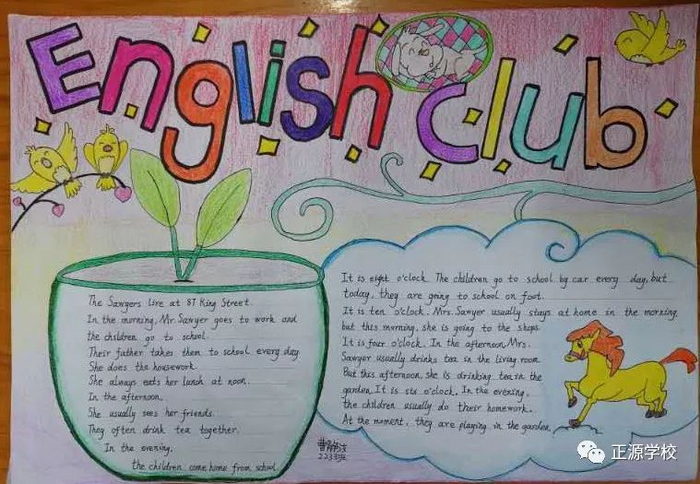 English Club
The Sawyers live at 87 King Street.
In the morning, Mr. Sawyer goes to work and
the children go to school.
Their father takes them to school every day.
She does the housework.
She always eats her lunch at noon.
In the afternoon,
She usually sees her friends.
They often drink tea together.
In the evening,
the children come home from school
It is eight o'clock. The children go to school by car every day, but
today, they are going to school on foot.
It is ten o'clock. Mrs. Sawyer usually stays at home in the morning
but this morning, she is going to the shops.
It is four o'clock. In the afternoon, Mrs.
Sawyer usually drinks tea in the living room.
But this afternoon, she is drinking tea in the
garden. It is six o'clock. In the evening,
the children usually do their homework.
At the moment, they are playing in the garden.
223班
正源学校